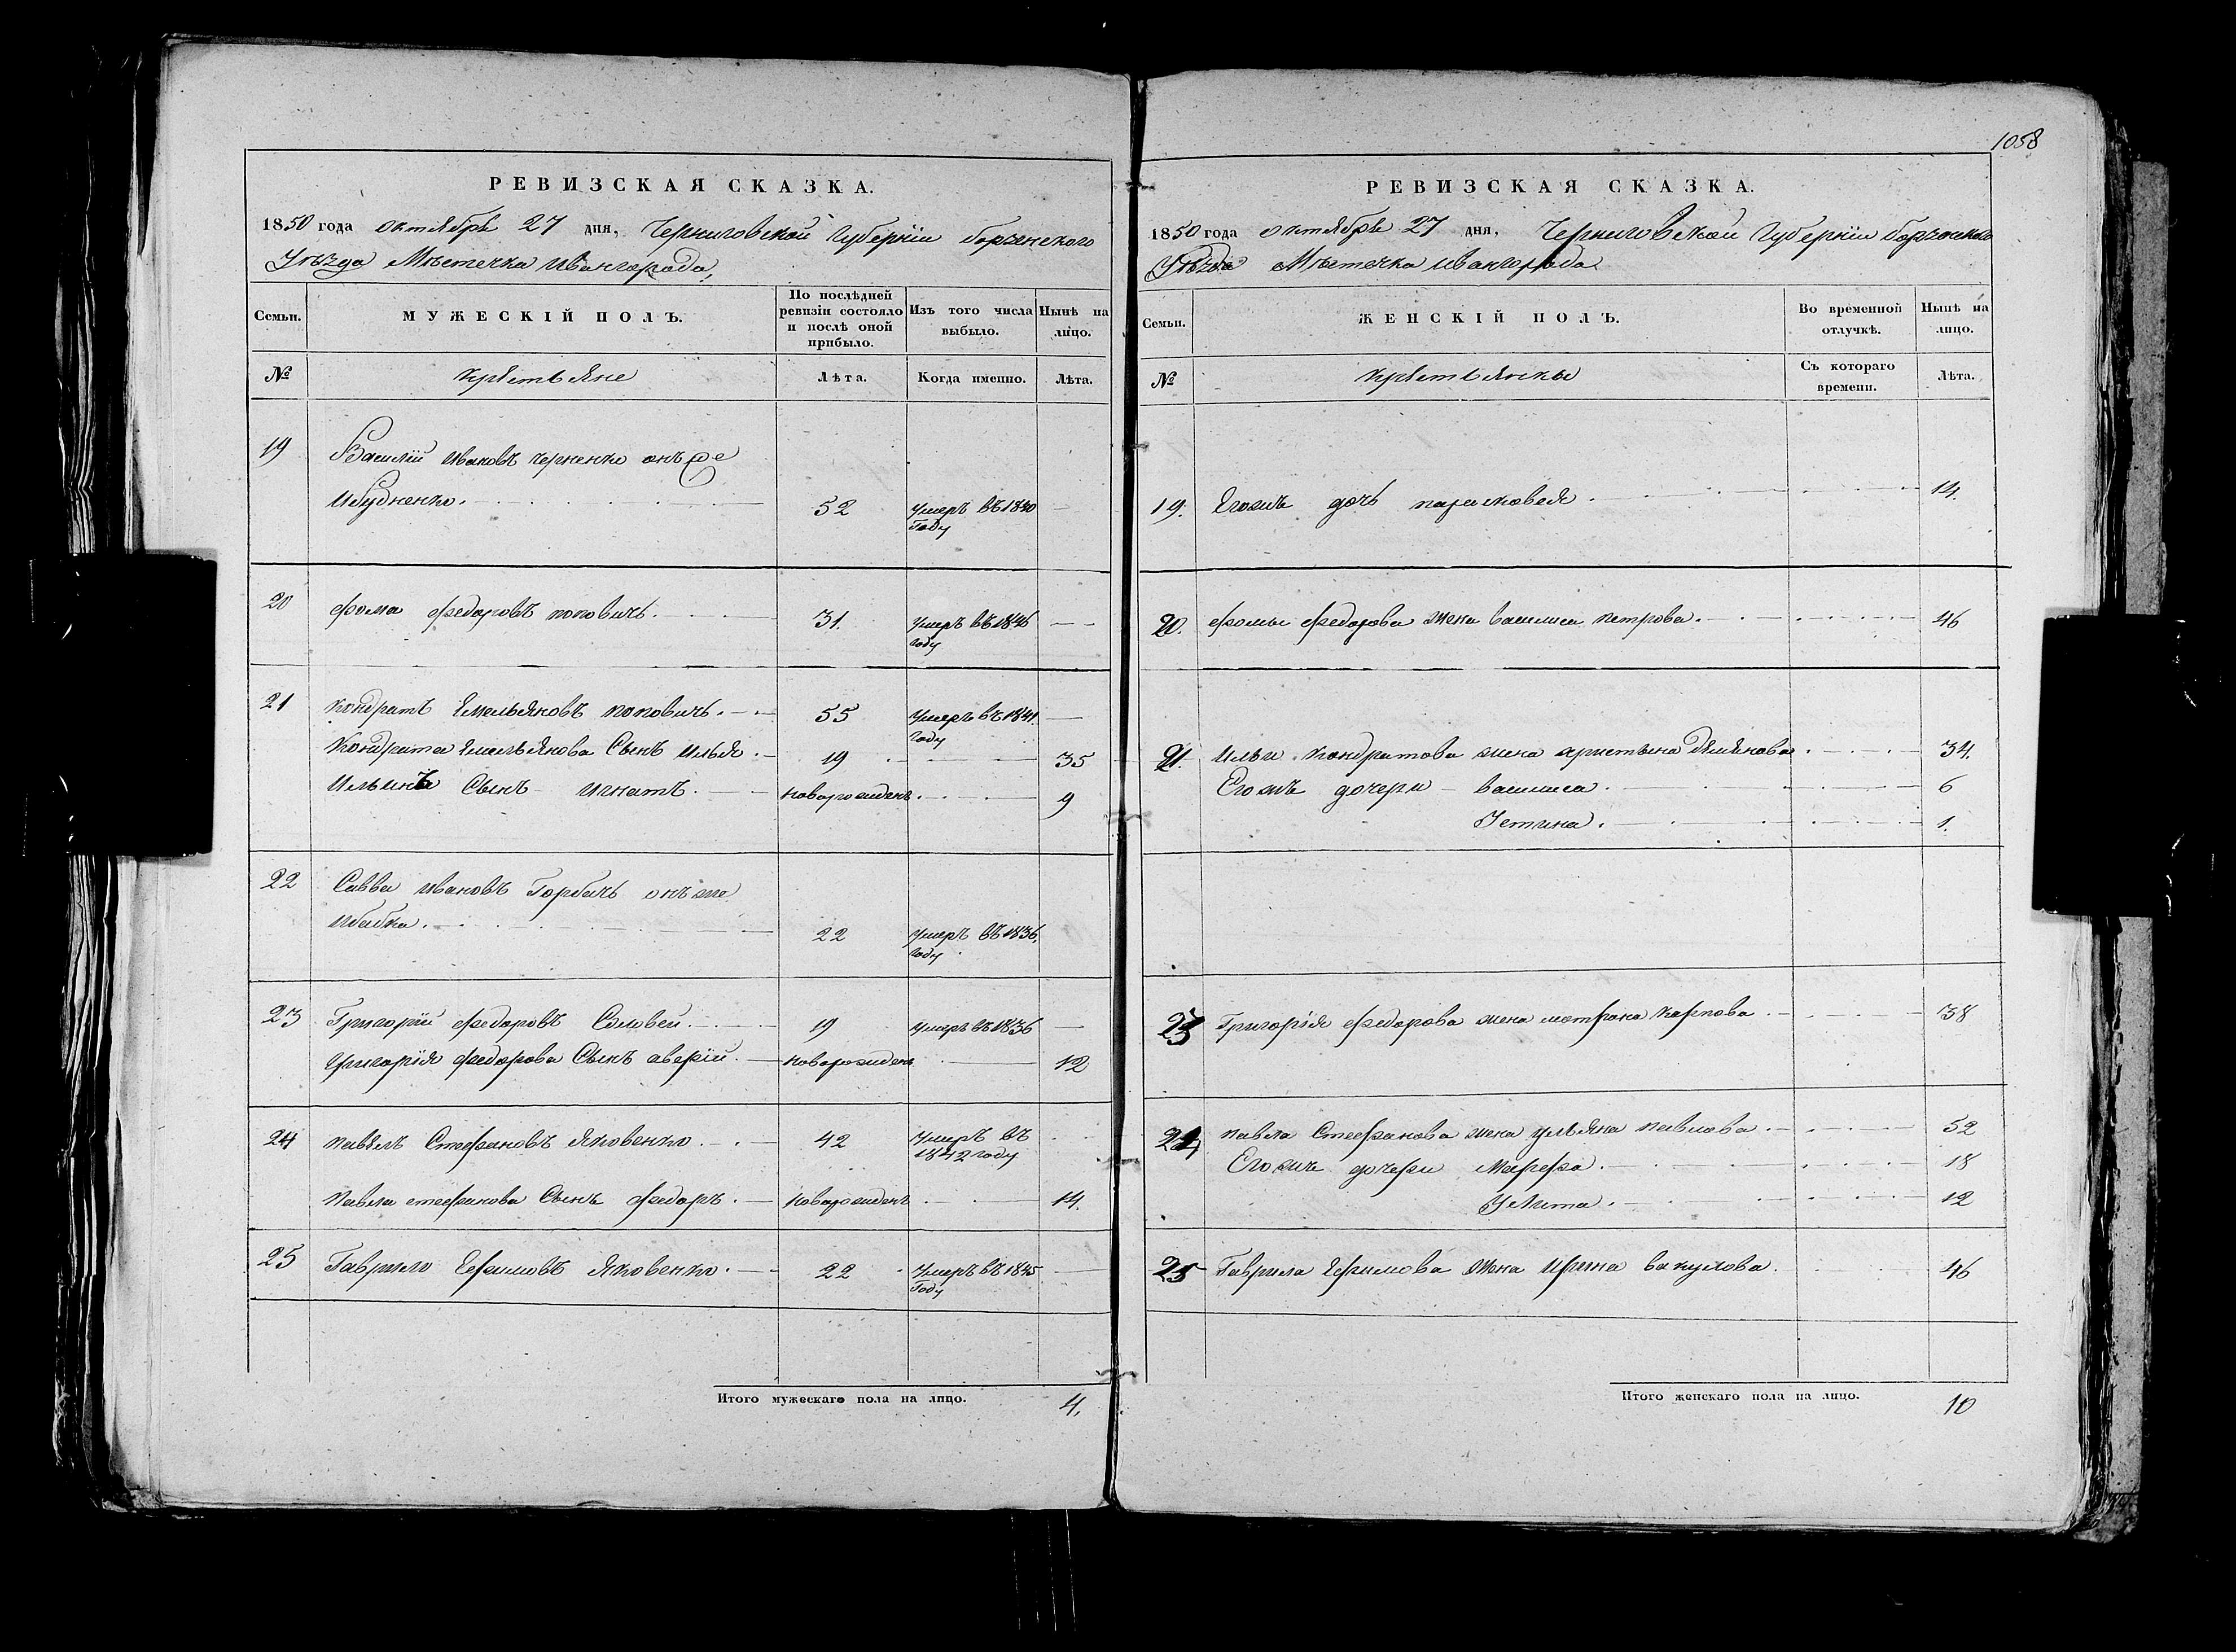 РЕВИЗСКАЯ СКАЗКА.
1850 года октября 27 дня, Черниговской Губерніи борзенского
Уѣзда Мѣстечка Ивангорода,
Семьи. МУЖЕСКІЙ ПОЛЪ. По послѣдней ревизіи состояло и послѣ оной прибыло. Изъ того числа выбыло. Нынѣ на лицо.
№ крестьяне Лѣта. Когда именно. Лѣта.
19 Василій Ивановъ Черненко онъ же
Ибудненко. 52 умеръ въ 1840 Году
20 Фома Федоровъ поповичь. 31. умеръ въ 1846 году
21 Кондратъ Емельяновъ поповичь. 55 умеръ въ 1841. году
Кондрата Емельянова Сынъ Илья. 19 35
Ильинъ Сынъ Игнатъ. новорожденъ. 9
22 Савва Ивановъ Горбачь онъ же
Ибабка. 22 умеръ въ 1836. году
23 Григорій Федоровъ Соловей. 19 умеръ въ 1836
Григорія Федорова Сынъ аверій. новорожденъ 12
24 павелъ Стефановъ Яковенко. 42 Умеръ въ 1842 году
павла стефанова Сынъ Федоръ. новорожденъ 14.
25 Гаврило Ефимовъ Яковенко. 22 Умеръ въ 1845 Году
Итого мужескаго пола на лицо. 4.
1058
РЕВИЗСКАЯ СКАЗКА.
1850 года октября 27 дня, Черниговской Губерніи борзенского
Уѣзда Мѣстечка Ивангорода.
Семьи. ЖЕНСКІЙ ПОЛЪ. Во временной отлучкѣ. Нынѣ на лицо.
№ крестьянки Съ котораго времени. Лѣта.
19. Егожъ дочь парасковея. 14.
20. Фомы Федорова жена василиса петрова. 46
21. Ильи Кондратова жена христина Демянова. 34.
Егожъ дочери василиса. 6
Устина. 1.
23 Григорія Федорова жена мотрона Карпова. 38
24 павла Стефанова жена ульяна павлова. 52
Егожъ дочери Марфа. 18
Улита. 12
25 Гаврила Ефимова жена Ирина вакулова. 46
Итого женскаго пола на лицо. 10